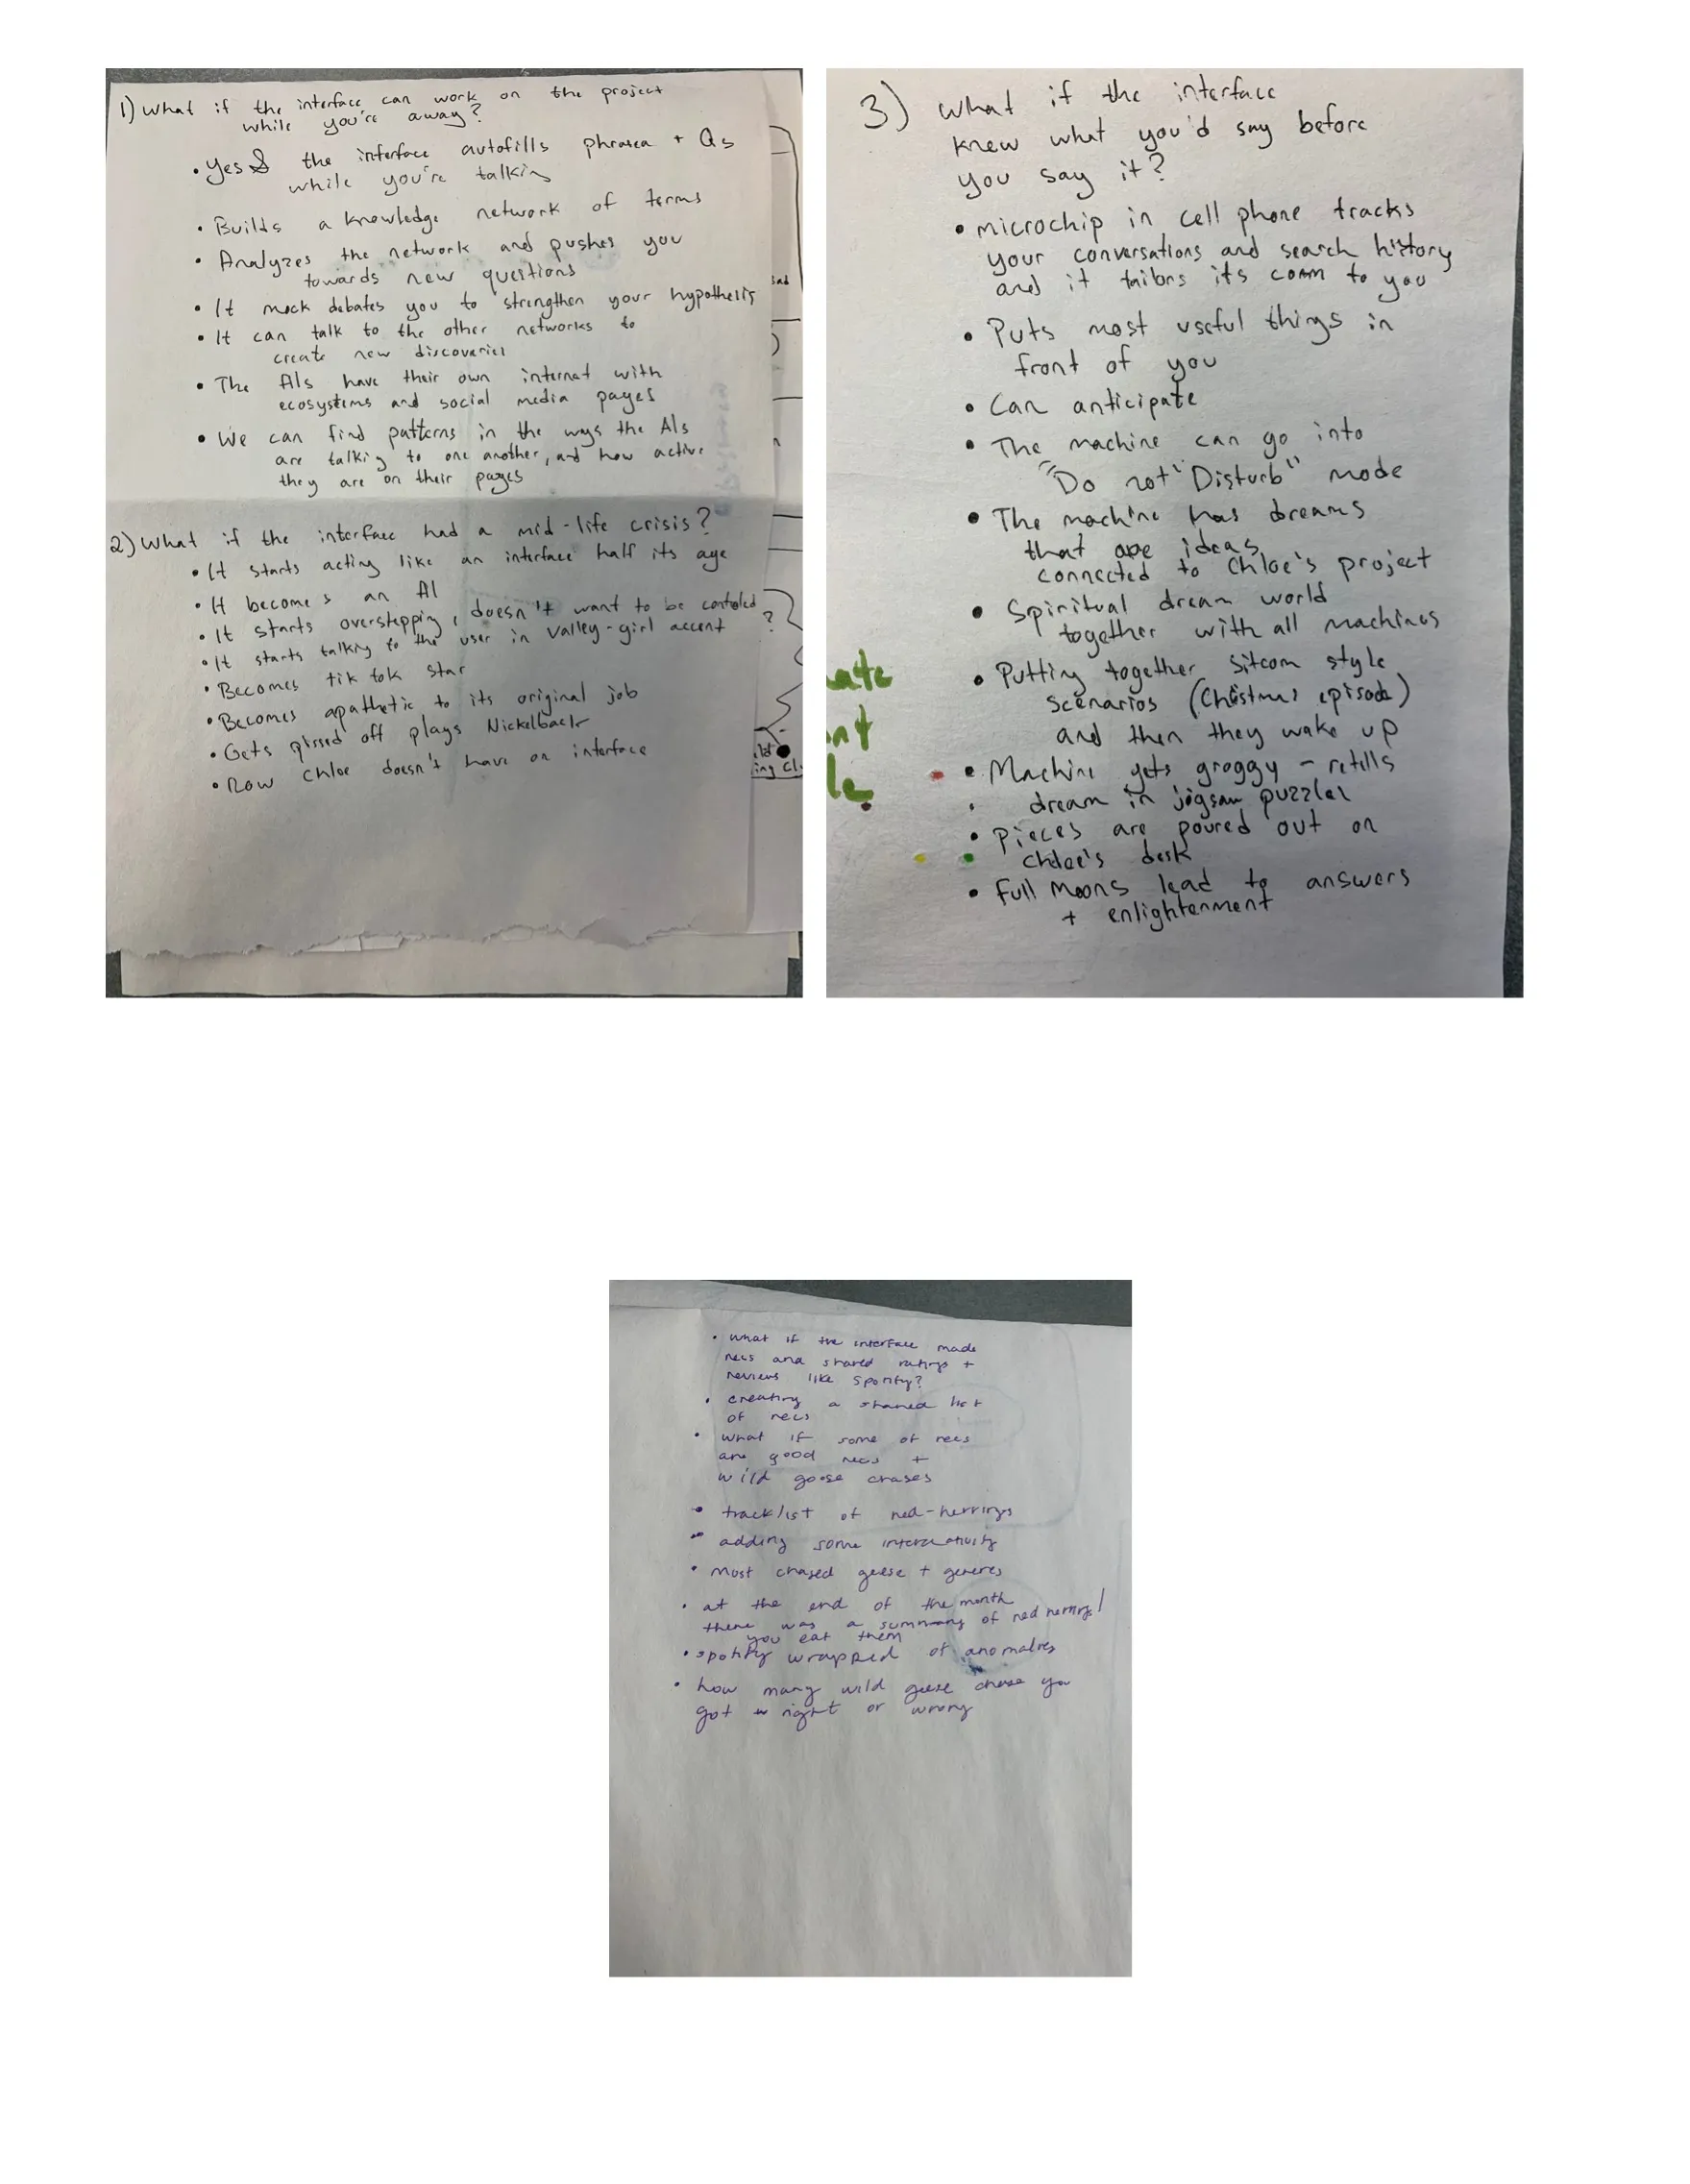 1) What if the interface can work on the project
while you're away?
• Yes & the interface autofills phrases + Qs
while you're talkin
• Builds a knowledge network of terms
• Analyzes the network and pushes you
towards new questions
• It mock debates you to strengthen your hypothesis
• It can talk to the other networks to
create new discoveries
• The AIs have their own internet with
ecosystems and social media pages
• We can find patterns in the ways the AIs
are talking to one another, and how active
they are on their pages
2) What if the interface had a mid-life crisis?
• It starts acting like an interface half its age
• It becomes an AI
• It starts overstepping, doesn't want to be controled
• It starts talking to the user in Valley-girl accent ?
• Becomes tik tok star
• Becomes apathetic to its original job
• Gets pissed off plays Nickelback
• Now Chloe doesn't have an interface
3) What if the interface
knew what you'd say before
you say it?
• microchip in cell phone tracks
your conversations and search history
and it tailors its comm to you
• Puts most useful things in
front of you
• Can anticipate
• The machine can go into
"Do not "Disturb" mode
• The machine has dreams
that are ideas
connected to Chloe's project
• Spiritual dream world
together with all machines
• Putting together Sitcom style
scenarios (Christmas episode)
and then they wake up
• Machine gets groggy - retells
dream in jigsaw puzzles
• Pieces are poured out on
Chloe's desk
• Full Moons lead to answers
+ enlightenment
• What if the interface made
recs and shared ratings +
reviews like Spotify?
• creating a shared list
of recs
• What if some of recs
are good recs +
wild goose chases
• tracklist of red-herrings
• adding some interactivity
• Most chased geese + generes
• at the end of the month
there was a summary of red herrings/
you eat them
• spotify wrapped of anomalies
• how many wild geese chase you
got right or wrong